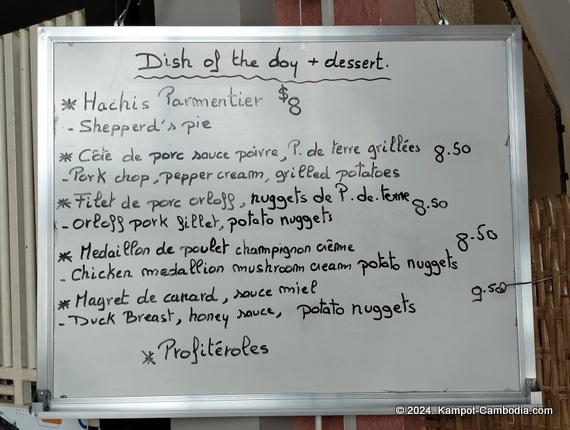 Dish of the day + dessert.
* Hachis Parmentier $8
- Shepperd's pie
* Côte de porc sauce poivre, P. de terre grillées 8.50
- Pork chop, pepper cream, grilled potatoes
* Filet de porc orloff, nuggets de P. de. terre 8.50
- Orloff pork fillet, potato nuggets
* Medaillon de poulet champignon crème 8.50
- Chicken medallion mushroom cream potato nuggets
* Magret de canard, sauce miel 9.50
- Duck Breast, honey sauce, potato nuggets
* Profitéroles
© 2024 Kampot-Cambodia.com